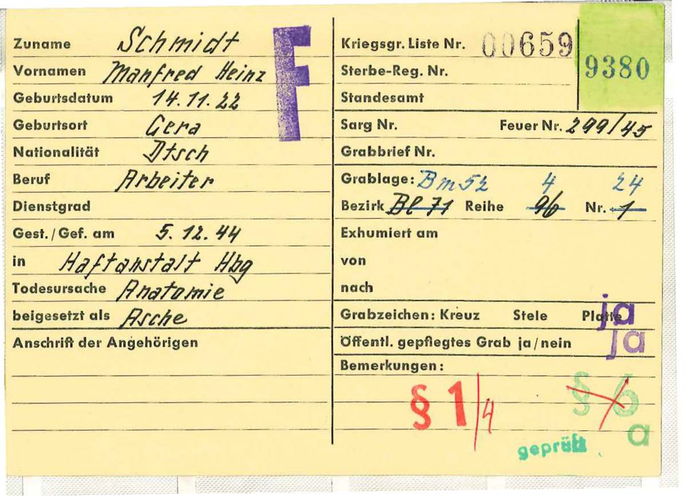 Zuname Schmidt
Vornamen Manfred Heinz
Geburtsdatum 14.11.22
Geburtsort Gera
Nationalität Dtsch
Beruf Arbeiter
Dienstgrad
Gest./Gef. am 5.12.44
in Haftanstalt Hbg
Todesursache Anatomie
beigesetzt als Asche
Anschrift der Angehörigen
F
Kriegsgr. Liste Nr. 00659
9380
Sterbe-Reg. Nr.
Standesamt
Sarg Nr. Feuer Nr. 299/45
Grabbrief Nr.
Grablage: Bm52 4 24
Bezirk Bl 71 Reihe 96 Nr. 1
Exhumiert am
von
nach
Grabzeichen: Kreuz Stele Platte ja
Öffentl. gepflegtes Grab ja/nein ja
Bemerkungen:
§ 1/4 § 6
a
geprüft